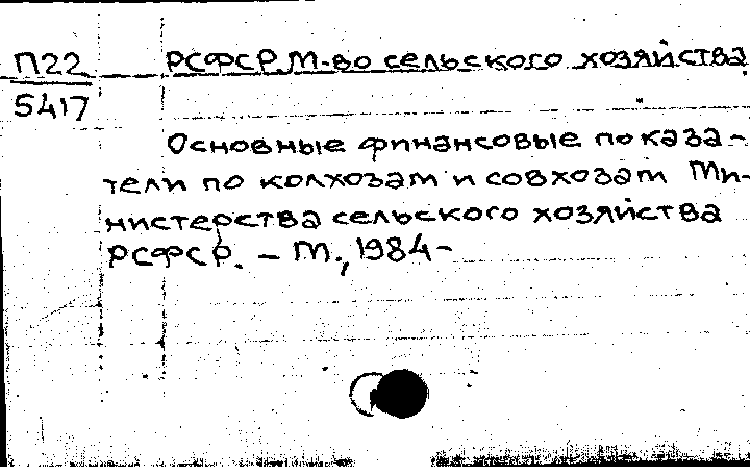 П22 РСФСР. М-во сельского хозяйства
5417
Основные финансовые показа-
тели по колхозам и совхозам Ми-
нистерства сельского хозяйства
РСФСР. – М., 1984–